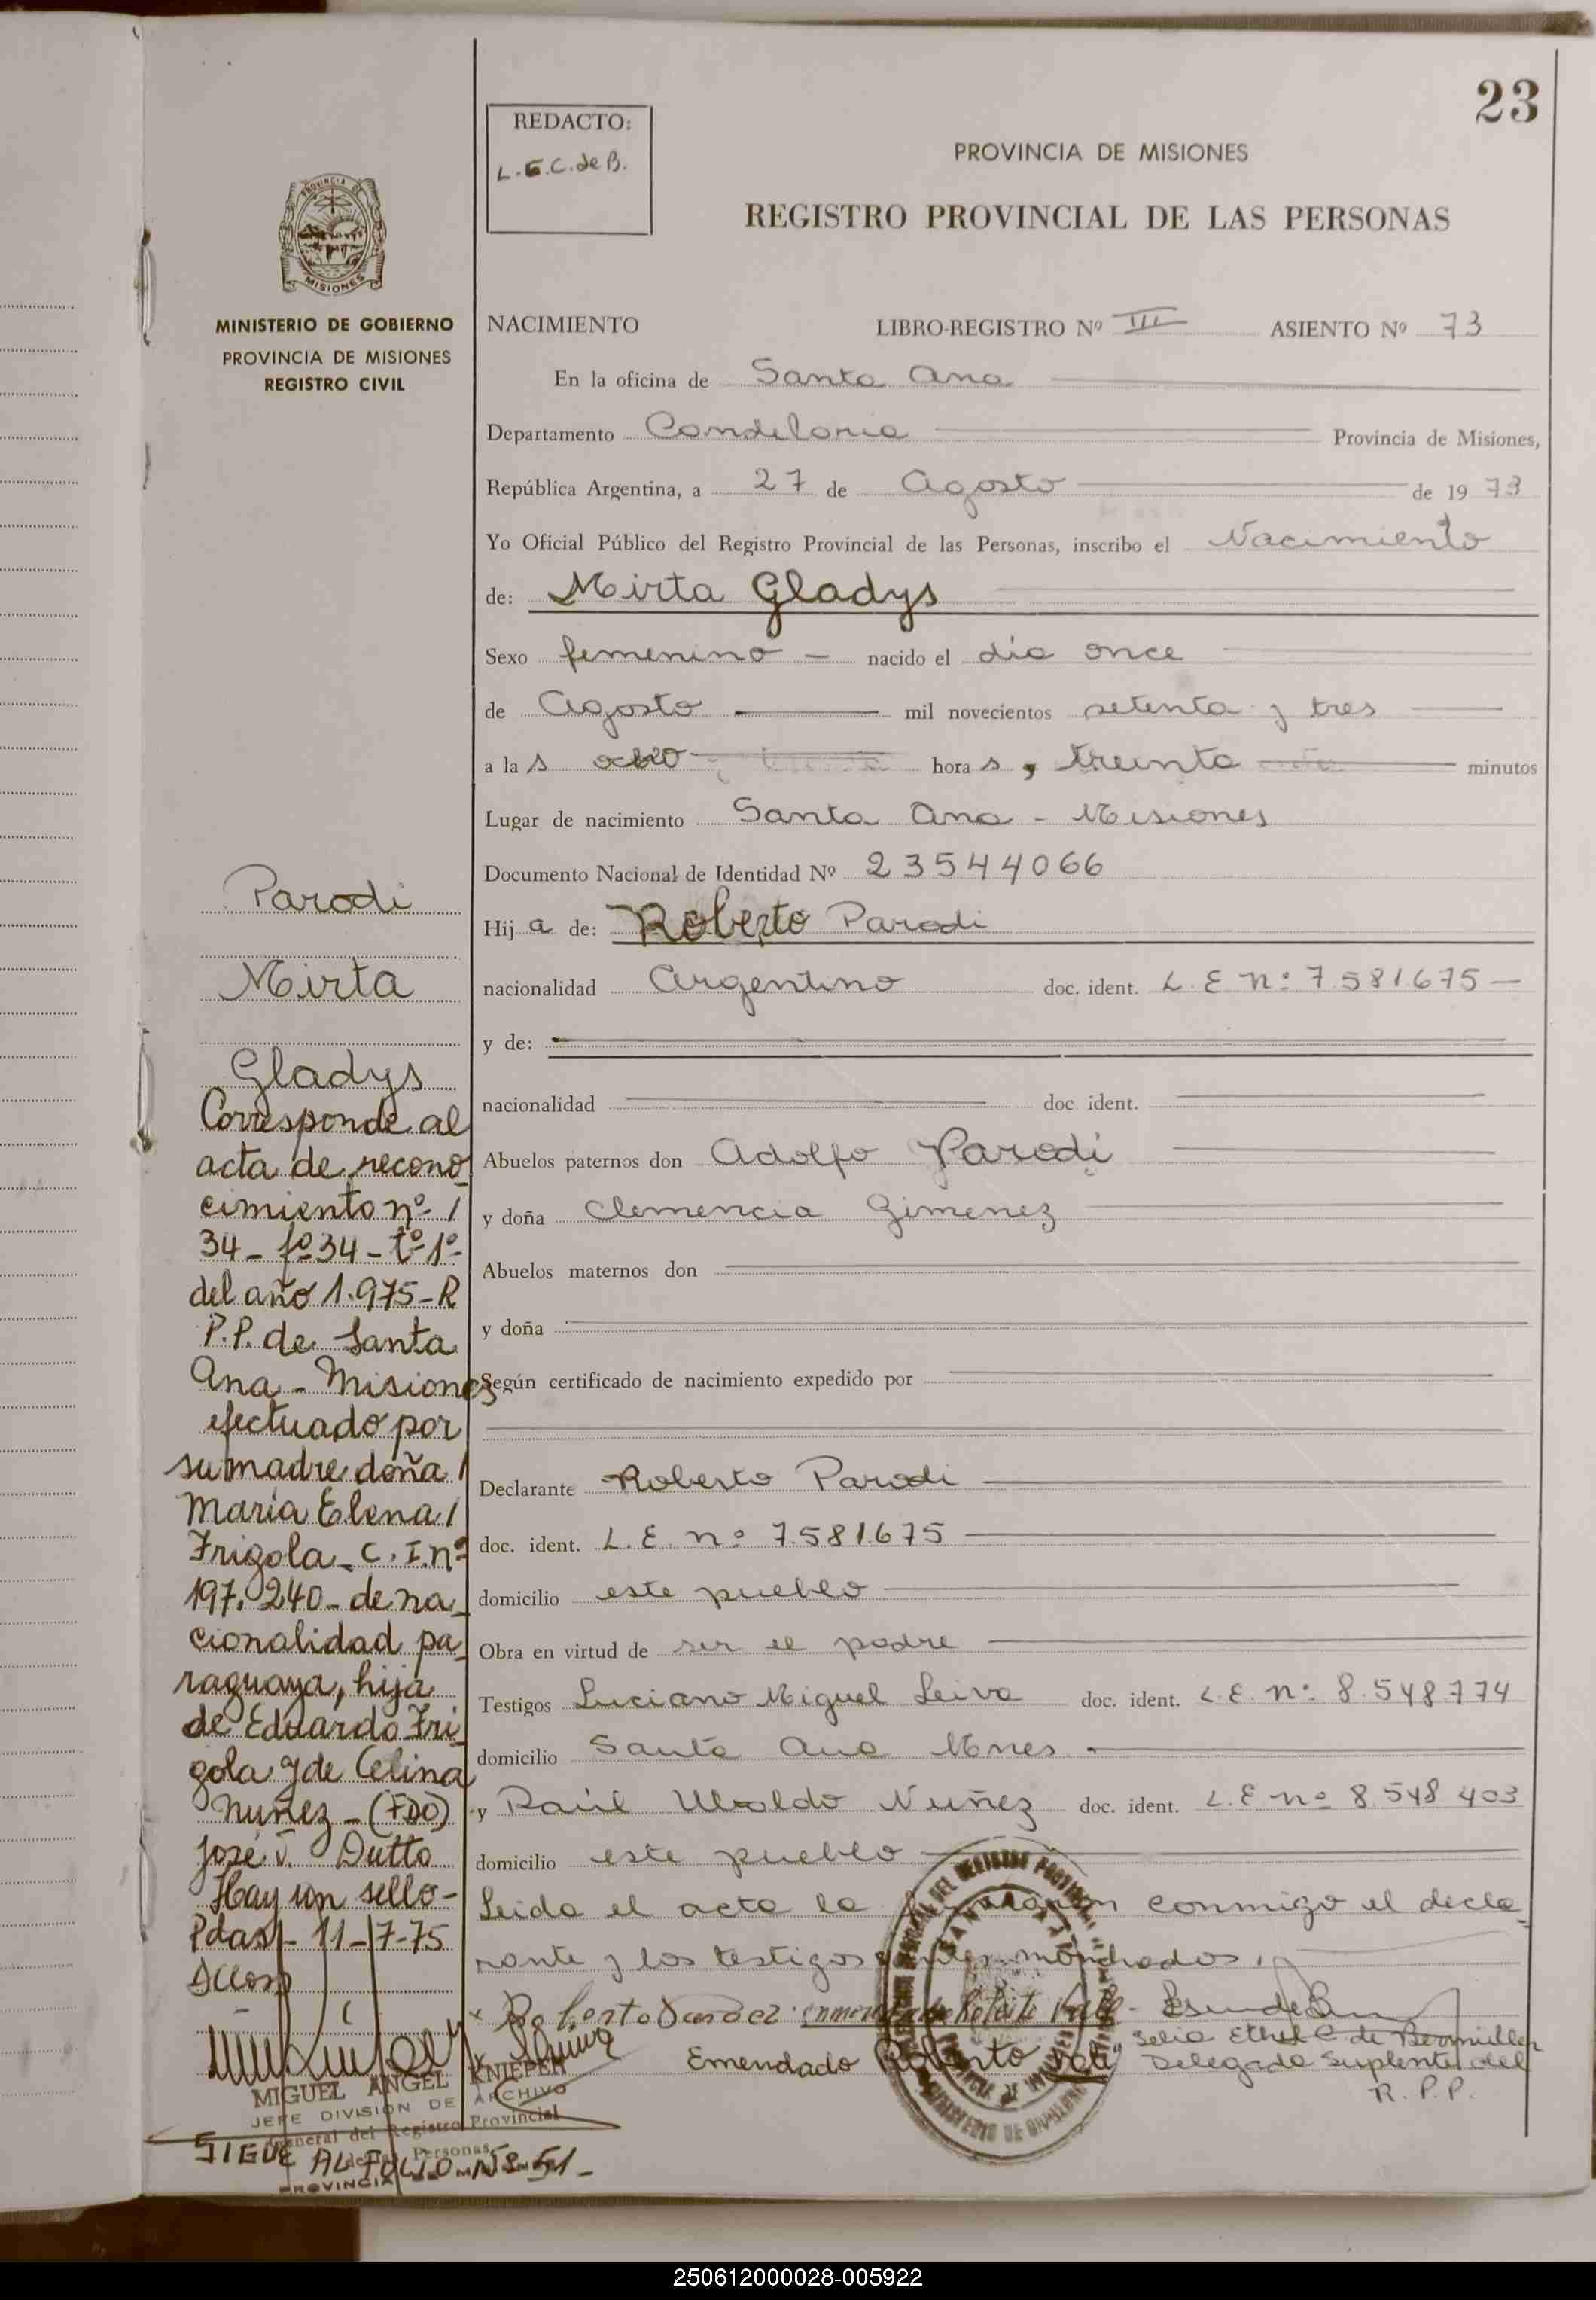 23
REDACTO:
L.E.C. de B.
PROVINCIA DE MISIONES
REGISTRO PROVINCIAL DE LAS PERSONAS
PROVINCIA DE
MISIONES
MINISTERIO DE GOBIERNO
PROVINCIA DE MISIONES
REGISTRO CIVIL
NACIMIENTO LIBRO-REGISTRO Nº III ASIENTO Nº 73
En la oficina de Santa Ana
Departamento Candelaria Provincia de Misiones,
República Argentina, a 27 de Agosto de 1973
Yo Oficial Público del Registro Provincial de las Personas, inscribo el Nacimiento
de: Mirta Gladys
Sexo femenino - nacido el día once
de Agosto mil novecientos setenta y tres
a las ocho horas, treinta minutos
Lugar de nacimiento Santa Ana - Misiones
Documento Nacional de Identidad Nº 23544066
Hija de: Roberto Parodi
nacionalidad Argentino doc. ident. L.E nº 7.581.675 -
y de:
nacionalidad doc ident.
Abuelos paternos don Adolfo Parodi
y doña Clemencia Gimenez
Abuelos maternos don
y doña
Según certificado de nacimiento expedido por
Declarante Roberto Parodi
doc. ident. L.E. nº 7.581.675
domicilio este pueblo
Obra en virtud de ser el padre
Testigos Luciano Miguel Leiva doc. ident. L.E. nº 8.548.774
domicilio Santa Ana Mnes
y Raúl Ubaldo Nuñez doc. ident. L.E nº 8.548.403
domicilio este pueblo
Leida el acta la conmigo el decla
rante y los testigos mencionados
Emendado Roberto vale
Delegada Suplente del
R.P.P.
Parodi
Mirta
Gladys
Corresponde al
acta de recono
cimiento nº /
34 - fº 34 - tº 1º -
del año 1.975 - R
P.P. de Santa
Ana - Misiones
efectuado por
su madre doña /
María Elena /
Frigola - C.I. nº
197.240 - de na_
cionalidad pa_
raguaya, hija
de Eduardo Fri_
gola y de Celina
Nuñez - (FDO)
José V. Dutto
Hay un sello -
Pdas - 11-7-75
MIGUEL ANGEL KNIEPER
JEFE DIVISION DE ARCHIVO
General del Registro Provincial
de las Personas
PROVINCIA
SIGUE AL FOLIO Nº 51 -
250612000028-005922